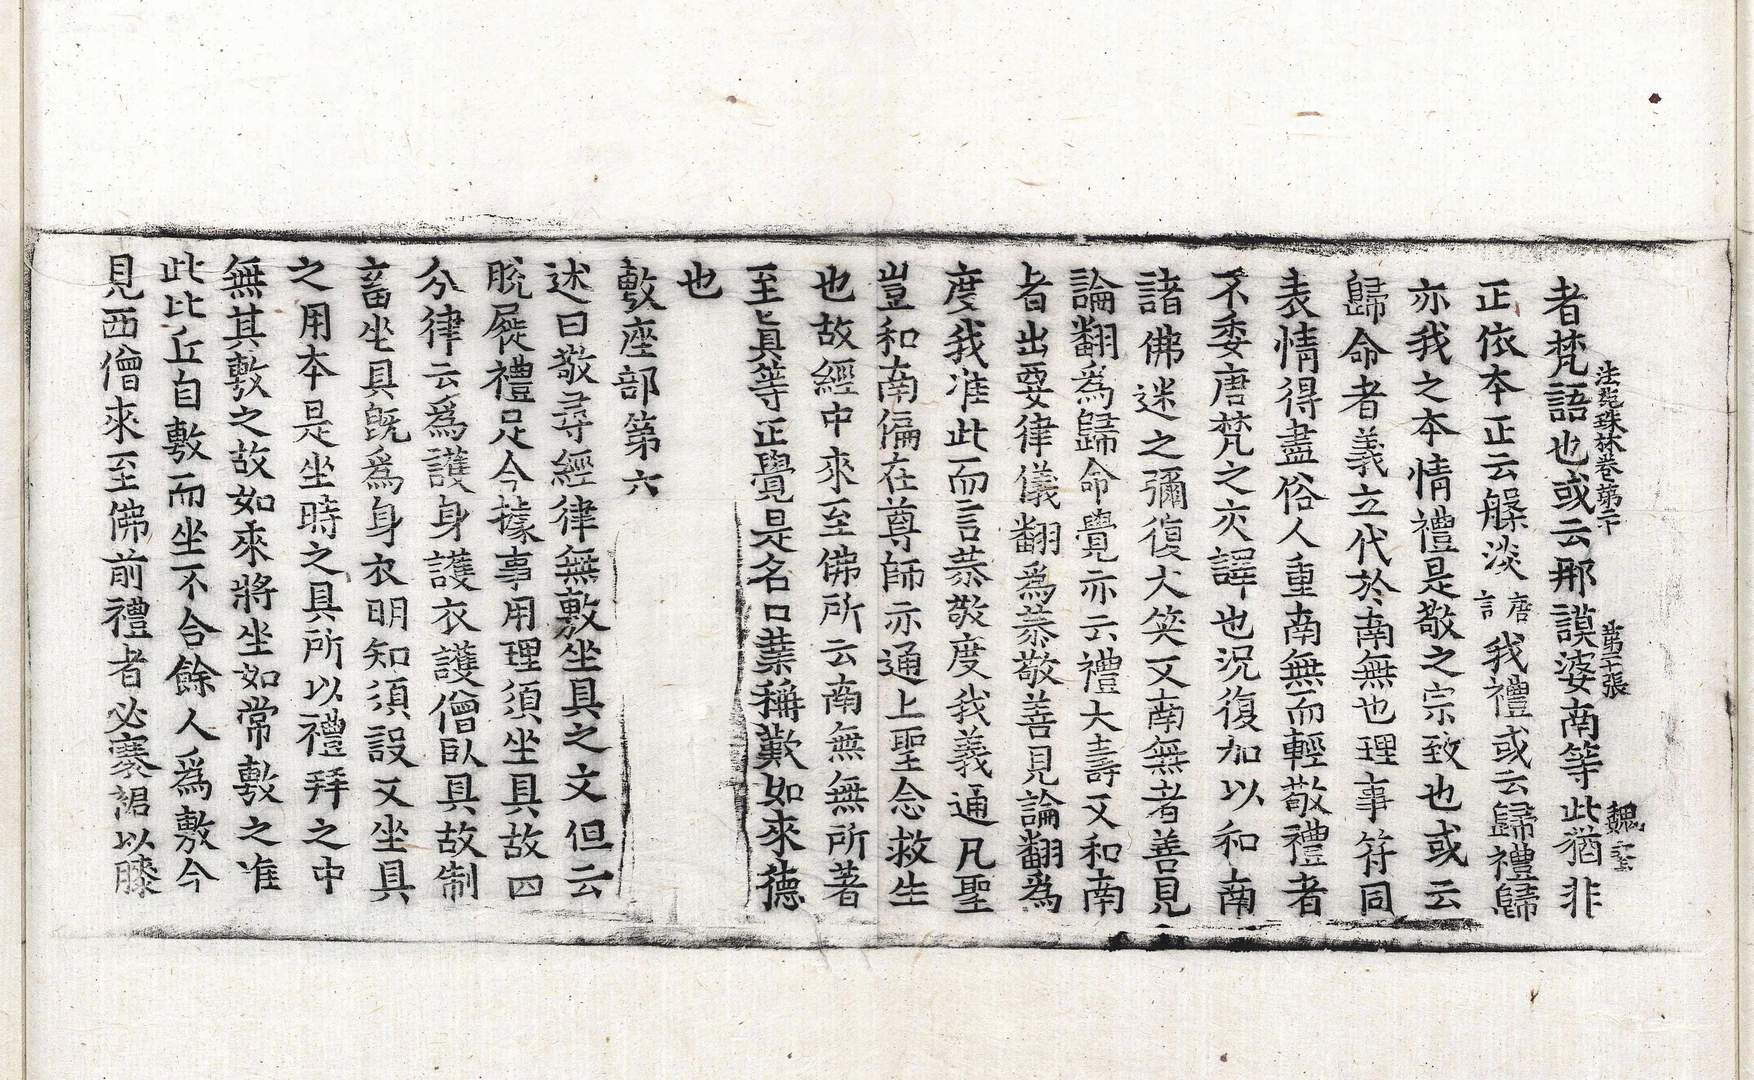 法苑珠林卷第二十　第二十張　魏
者梵語也或云那謨婆南等此猶非
正依本正云槃淡唐言我禮或云歸禮歸
亦我之本情禮是敬之宗致也或云
歸命者義立代於南無也理事符同
表情得盡俗人重南無而輕敬禮者
不委唐梵之交譯也況復加以和南
諸佛迷之彌復大笑又南無者善見
論翻爲歸命覺亦云禮大壽又和南
者出要律儀翻爲恭敬善見論翻爲
度我准此而言恭敬度我義通凡聖
豈和南偏在尊師亦通上聖念救生
也故經中來至佛所云南無無所著
至眞等正覺是名口業稱歎如來德
也
敷座部第六
述曰敬尋經律無敷坐具之文但云
脫屣禮足今據事用理須坐具故四
分律云爲護身護衣護僧臥具故制
畜坐具旣爲身衣明知須設又坐具
之用本是坐時之具所以禮拜之中
無其敷之故如來將坐如常敷之准
此比丘自敷而坐不合餘人爲敷今
見西僧來至佛前禮者必褰裙以膝